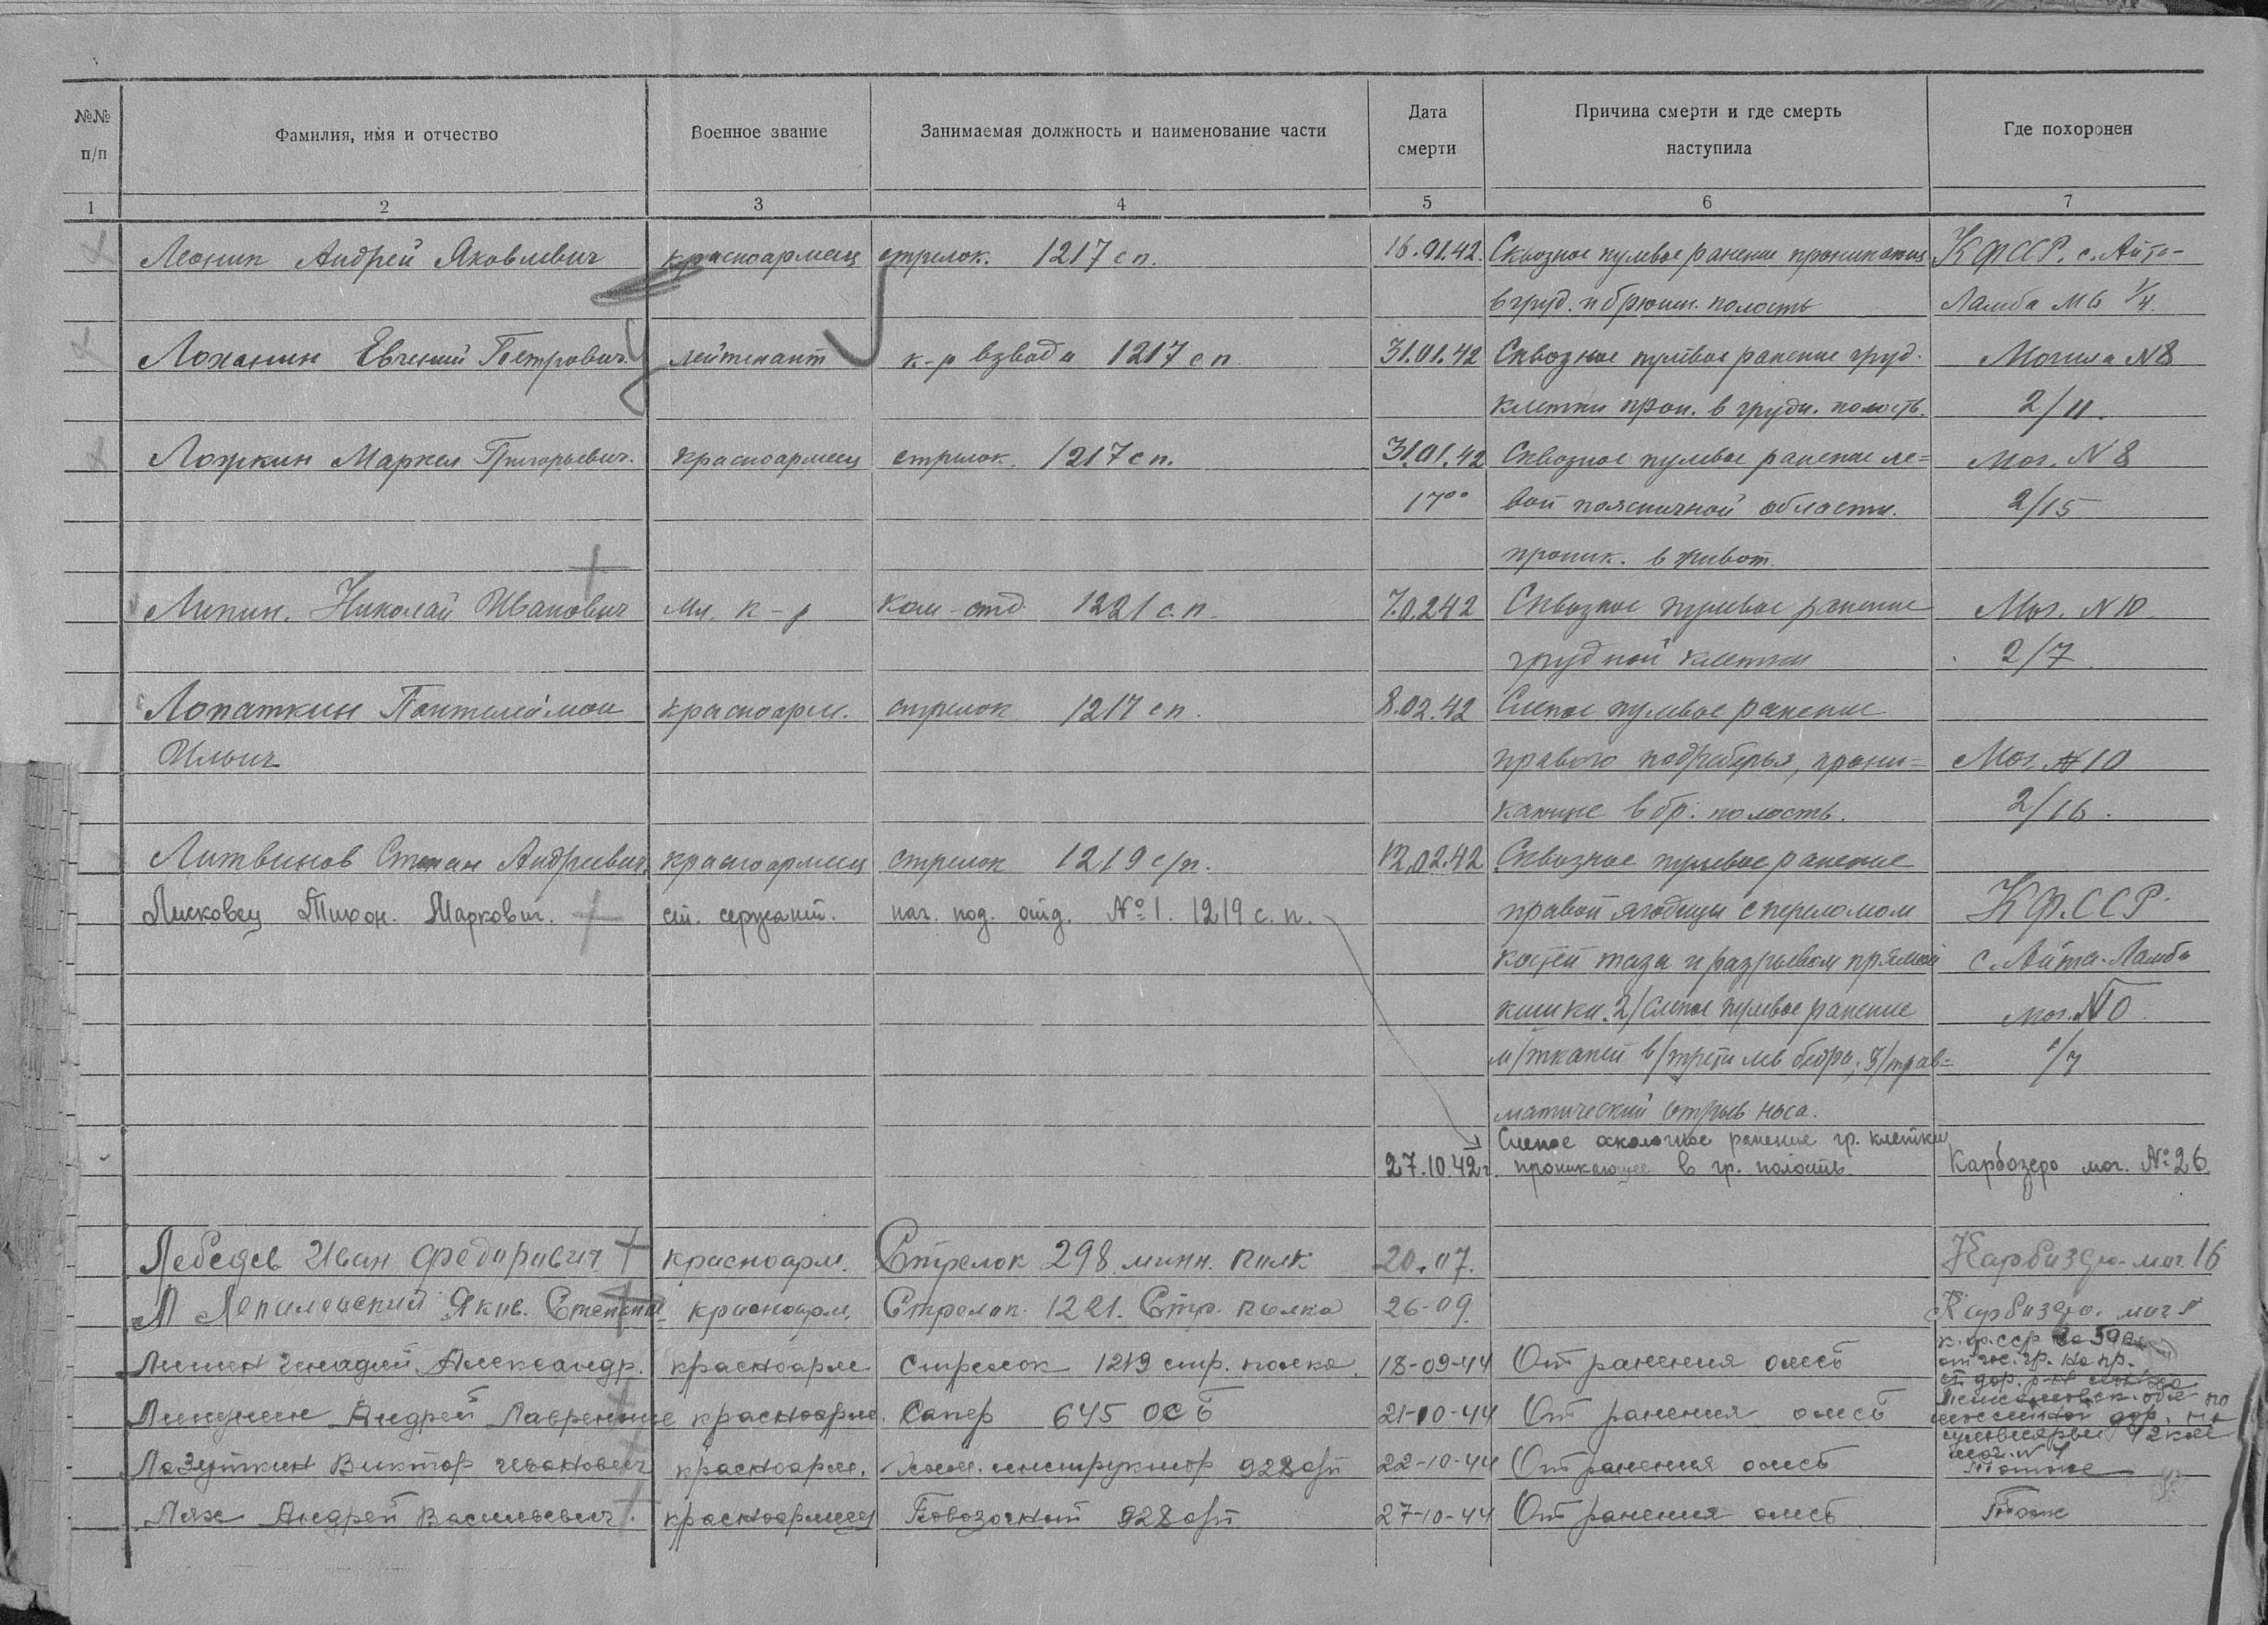 №№ п/п
Фамилия, имя и отчество
Военное звание
Занимаемая должность и наименование части
Дата смерти
Причина смерти и где смерть наступила
Где похоронен
1 2 3 4 5 6 7
Леонин Андрей Яковлевич красноармеец стрелок. 1217 сп. 16.01.42. Сквозное пулевое ранение КФССР. с. Айта-
в груд. и брюшн. полость Ламба М6 1/4.
Лоханин Евгений Петрович. лейтенант к-р взвода 1217 сп 31.01.42 Сквозное пулевое ранение груд. Могила N8
клетки прон. в грудн. полость. 2/11.
Ложкин Маркел Григорьевич. красноармеец стрелок. 1217 сп. 31.01.42 Сквозное пулевое ранение ле= Мог. N8
17°° вой поясничной области. 2/15
проник. в живот.
Липин. Николай Иванович мл. к-р ком-отд 1221 с.п. 7.0.242 Сквозное пулевое ранение Мог. N10.
грудной клетки 2/7.
Лопаткин Пантелеймон красноарм. стрелок 1217 сп. 8.02.42 Слепое пулевое ранение
Ильич правого подреберья, прони= Мог. N10
кающее в бр. полость. 2/16.
Литвинов Степан Андреевич. красноармеец стрелок 1219 с/п. 12.02.42 Сквозное пулевое ранение
Лисковец Тихон. Маркович. ст. сержант. нач. под. отд. №1. 1219 с. п. правой ягодицы с переломом КФ.ССР
костей таза и разрывом прямой с. Айта-Ламба
кишки. 2/ Слепое пулевое ранение мог. N10
м/тканей в/трети лев бедра; 3/ трав=
матический отрыв носа.
Слепое осколочное ранение гр. клетки
27.10.42г. проникающее в гр. полость. Карбозеро мог. №26
Лебедев Иван Федорович красноарм. Стрелок 298 мин. полк 20.07. Карбозеро мог. 16
Яков. красноарм. Стрелок. 1221. Стр. полка 26-09. Карбозеро. мог
Александр. красноарм. Стрелок 1219 стр. полка 18-09-44 От ранения омсб к.ф.сср
Андрей красноарм. Сапер 645 ОСБ 21-10-44 От ранения омсб
Лазуткин Виктор Иванович красноарм. инструктор 928 ап 22-10-44 От ранения омсб
Лях Андрей Васильевич. красноармеец Повозочный 928 ап 27-10-44 От ранения омсб Тоже